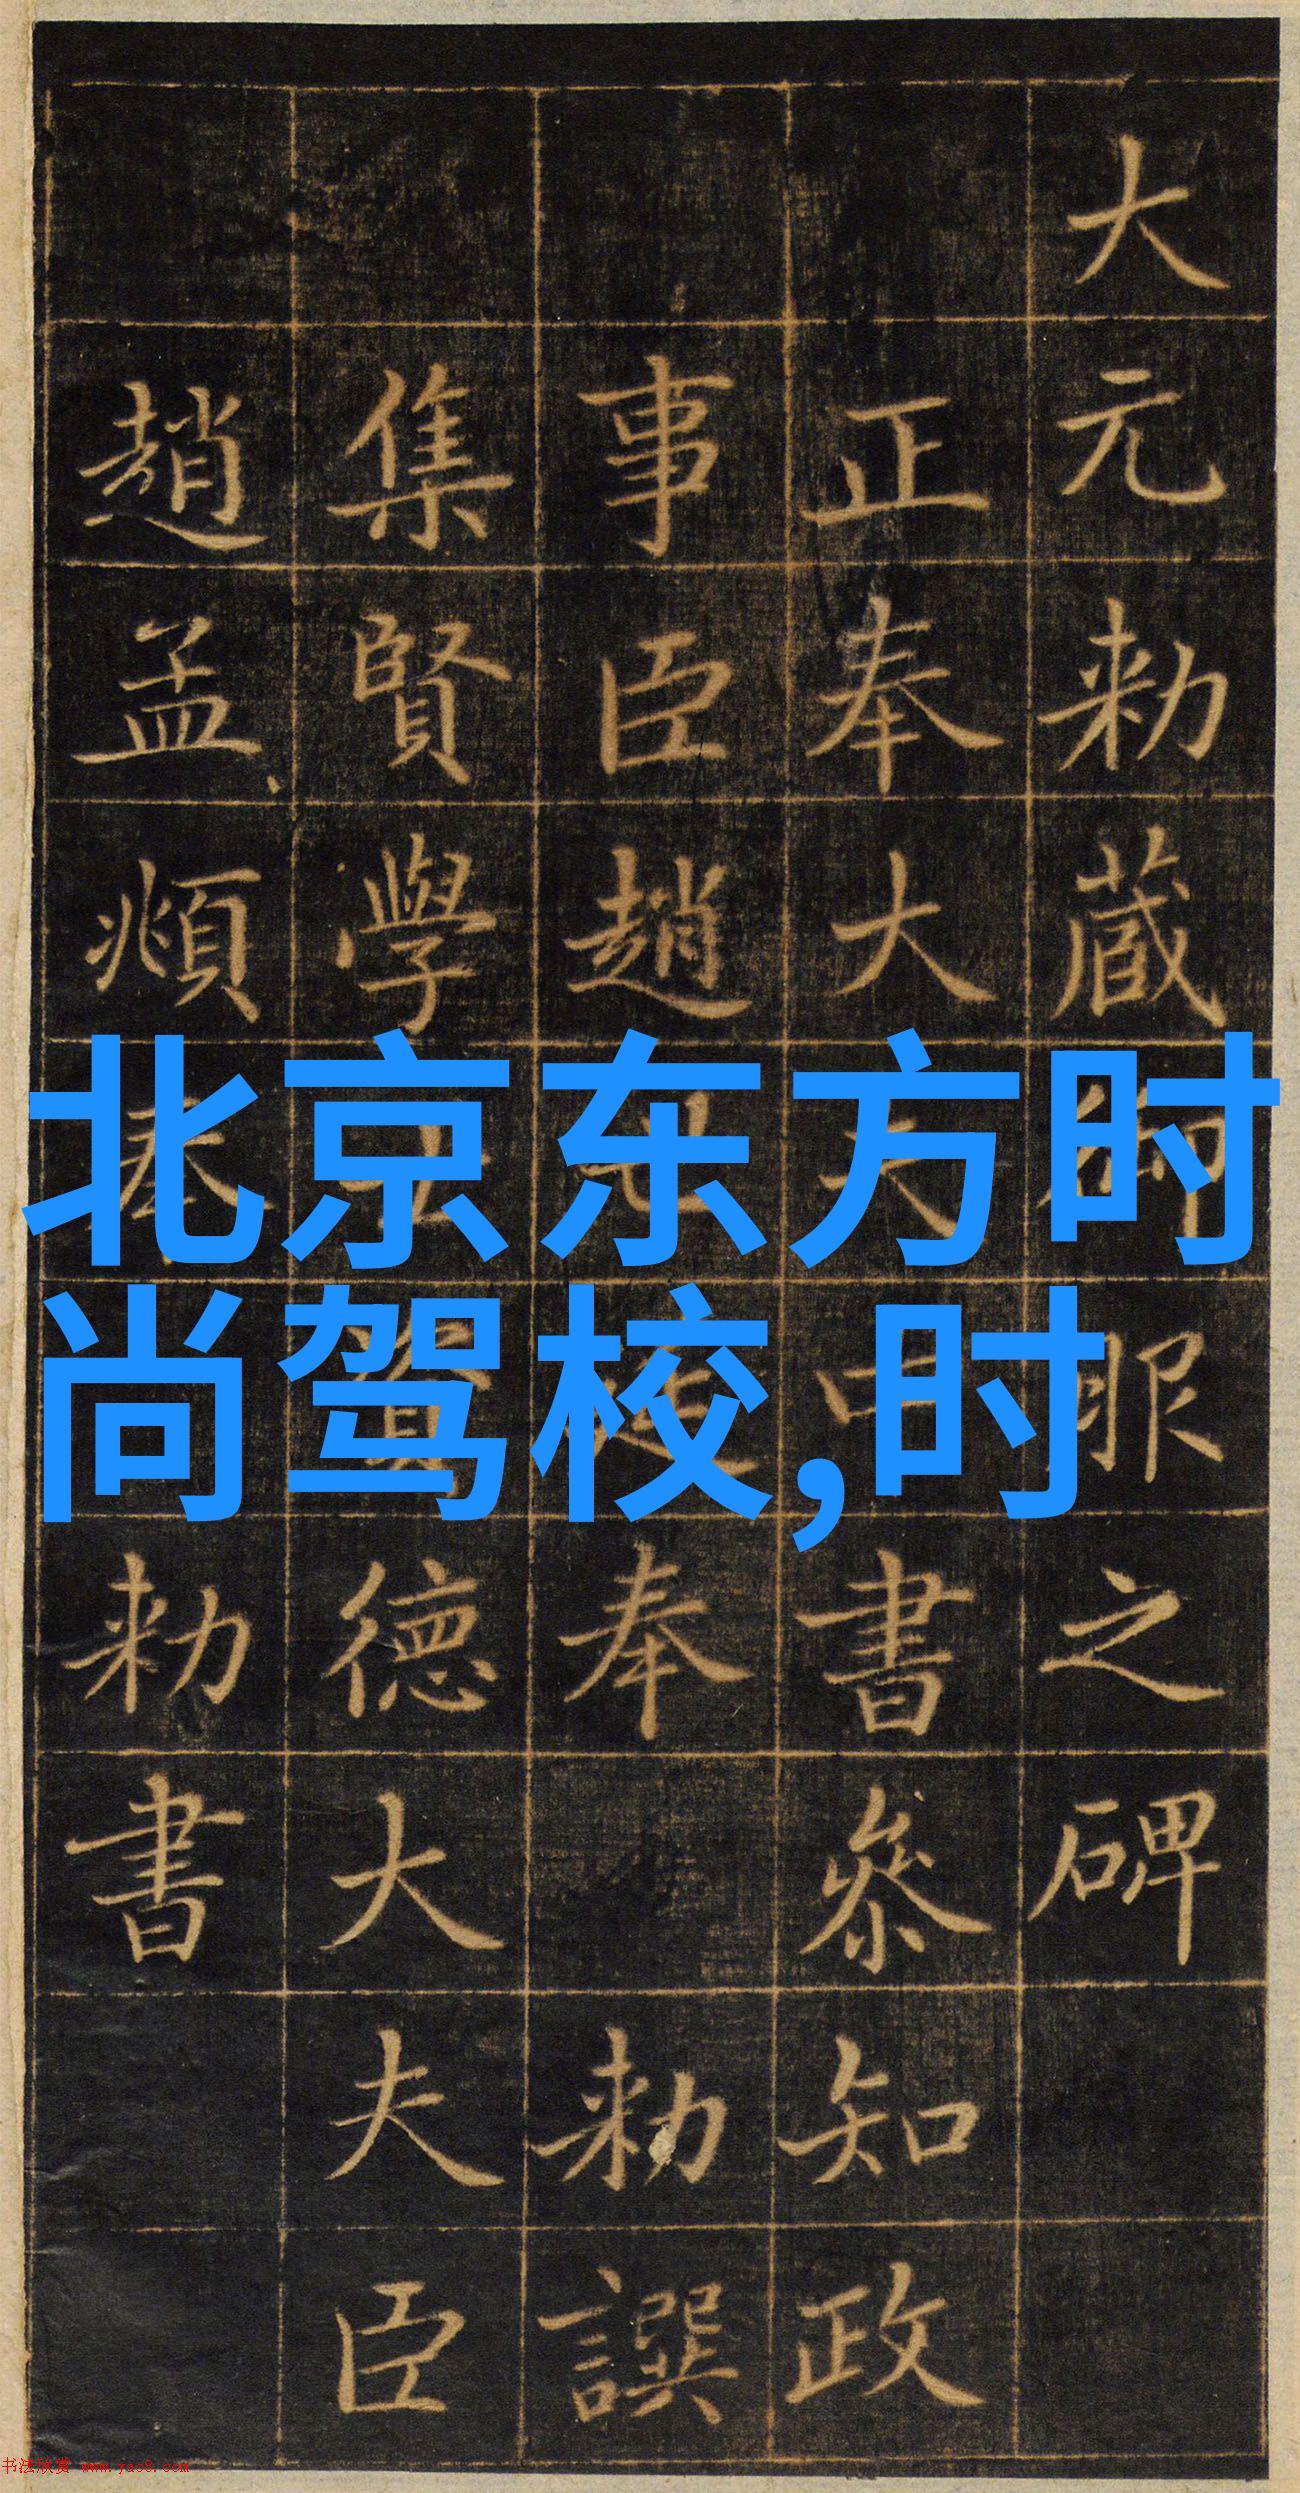 大元勑蔵御服之碑
正奉大夫中書叅知政
事臣趙世延奉勑譔
集賢學士資德大夫臣
趙孟頫奉勑書
北京东方时
尚驾校,时
书法欣赏 www.yac8.com